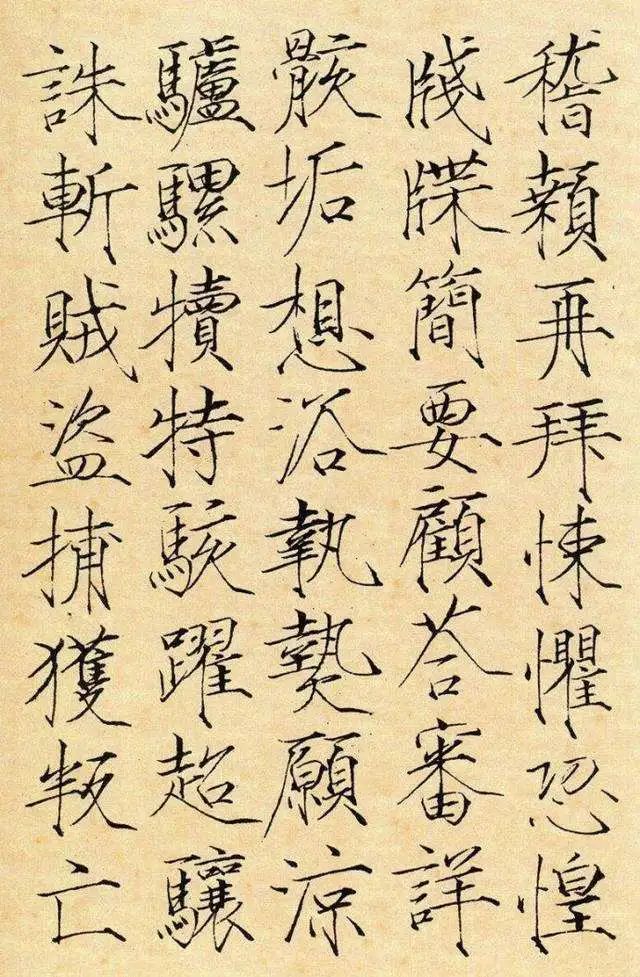 稽顙再拜悚懼恐惶
牋牒簡要顧荅審詳
骸垢想浴執熱願涼
驢騾犢特駭躍超驤
誅斬賊盜捕獲叛亡